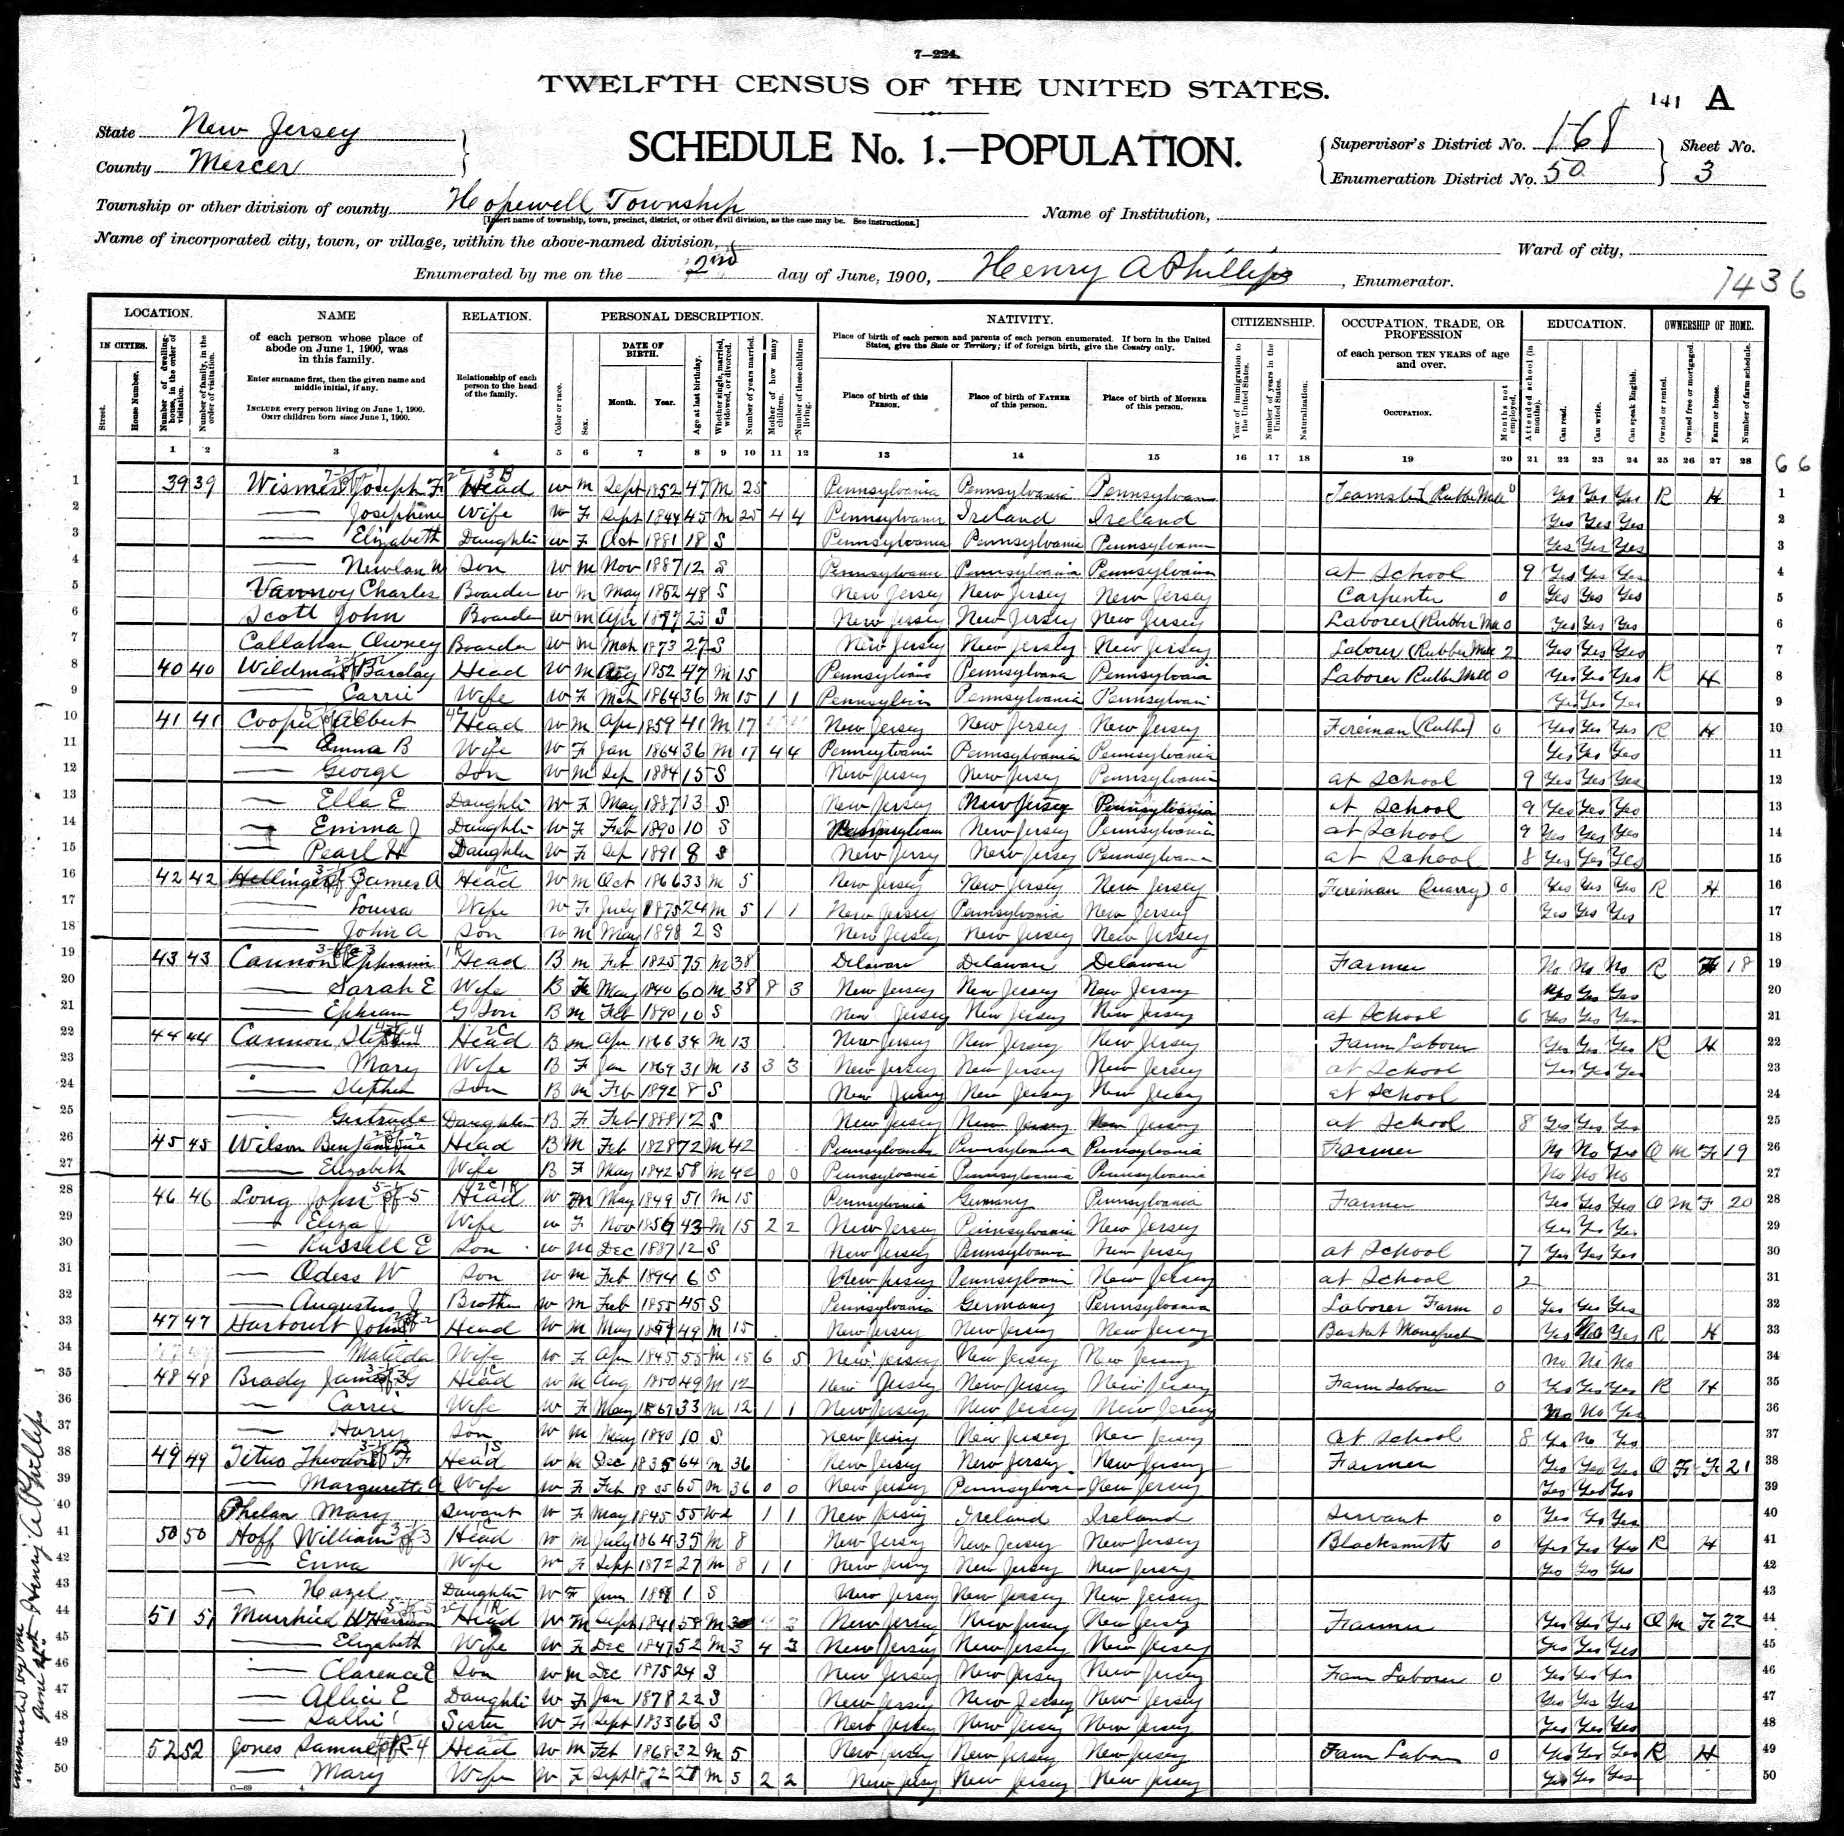 7-224.
TWELFTH CENSUS OF THE UNITED STATES.
141 A
SCHEDULE No. 1.—POPULATION.
State New Jersey
County Mercer
Supervisor's District No. 168
Enumeration District No. 50
Sheet No. 3
Township or other division of county Hopewell Township
[Insert name of township, town, precinct, district, or other civil division, as the case may be. See instructions.]
Name of Institution,
Name of incorporated city, town, or village, within the above-named division,
Ward of city,
Enumerated by me on the 2nd day of June, 1900, Henry A Phillips, Enumerator.
7436
LOCATION. NAME RELATION. PERSONAL DESCRIPTION. NATIVITY. CITIZENSHIP. OCCUPATION, TRADE, OR PROFESSION EDUCATION. OWNERSHIP OF HOME.
IN CITIES. Street. House Number. Number of dwelling-house, in the order of visitation. Number of family, in the order of visitation.
of each person whose place of abode on June 1, 1900, was in this family.
Enter surname first, then the given name and middle initial, if any.
INCLUDE every person living on June 1, 1900. OMIT children born since June 1, 1900.
Relationship of each person to the head of the family.
Color or race. Sex. DATE OF BIRTH. Month. Year. Age at last birthday. Whether single, married, widowed, or divorced. Number of years married. Mother of how many children. Number of these children living.
Place of birth of each person and parents of each person enumerated. If born in the United States, give the State or Territory; if of foreign birth, give the Country only.
Place of birth of this PERSON. Place of birth of FATHER of this person. Place of birth of MOTHER of this person.
Year of immigration to the United States. Number of years in the United States. Naturalization.
of each person TEN YEARS of age and over.
OCCUPATION. Months not employed.
Attended school (in months). Can read. Can write. Can speak English. Owned or rented. Owned free or mortgaged. Farm or house. Number of farm schedule.
1 2 3 4 5 6 7 8 9 10 11 12 13 14 15 16 17 18 19 20 21 22 23 24 25 26 27 28
66
1 39 39 Joseph F Head W M Sept 1852 47 M 25 Pennsylvania Pennsylvania Pennsylvan Yes Yes Yes R H 1
2 Josephine Wife W F Sept 1844 45 M 25 4 4 Pennsylvania Ireland Ireland Yes Yes Yes 2
3 Elizabeth Daughter W F Oct 1881 18 S Pennsylvania Pennsylvania Pennsylvania Yes Yes Yes 3
4 Newlan W Son W M Nov 1887 12 S Pennsylvania Pennsylvania Pennsylvania at School 9 Yes Yes Yes 4
5 Vannoy Charles Boarder W M May 1852 48 S New Jersey New Jersey New Jersey Carpenter 0 Yes Yes Yes 5
6 Scott John Boarder W M Apr 1877 23 S New Jersey New Jersey New Jersey Laborer (Rubber 0 Yes Yes Yes 6
7 Callahan Boarder W M Mch 1873 27 S New Jersey New Jersey New Jersey Laborer (Rubber Mill 2 Yes Yes Yes 7
8 40 40 Wildman Barclay Head W M 1852 47 M 15 Pennsylvania Pennsylvania Pennsylvania Laborer Rubber Mill 0 Yes Yes Yes R H 8
9 Carrie Wife W F Mch 1864 36 M 15 1 1 Pennsylvania Pennsylvania Pennsylvania Yes Yes Yes 9
10 41 41 Cooper Albert Head W M Apr 1859 41 M 17 New Jersey New Jersey New Jersey Foreman (Rubber) 0 Yes Yes Yes R H 10
11 Emma B Wife W F Jan 1864 36 M 17 4 4 Pennsylvania Pennsylvania Pennsylvania Yes Yes Yes 11
12 George Son W M Sep 1884 15 S New Jersey New Jersey Pennsylvania at School 9 Yes Yes Yes 12
13 Ella E Daughter W F May 1887 13 S New Jersey New Jersey Pennsylvania at School 9 Yes Yes Yes 13
14 Emma J Daughter W F Feb 1890 10 S New Jersey Pennsylvania at School 9 Yes Yes Yes 14
15 Pearl H Daughter W F Sep 1891 8 S New Jersey New Jersey Pennsylvania at School 8 Yes Yes Yes 15
16 42 42 James A Head W M Oct 1866 33 M 5 New Jersey New Jersey New Jersey Foreman (Quarry) 0 Yes Yes Yes R H 16
17 Louisa Wife W F July 1875 24 M 5 1 1 New Jersey Pennsylvania New Jersey Yes Yes Yes 17
18 John A Son W M May 1898 2 S New Jersey New Jersey New Jersey 18
19 43 43 Cannon Ephraim Head B M Feb 1825 75 M 38 Delaware Delaware Delaware Farmer No No No R 18 19
20 Sarah E Wife B F May 1840 60 M 38 8 3 New Jersey New Jersey New Jersey Yes Yes Yes 20
21 Ephram G Son B M Feb 1890 10 S New Jersey New Jersey New Jersey at School 6 Yes Yes Yes 21
22 44 44 Cannon Head B M Apr 1866 34 M 13 New Jersey New Jersey New Jersey Farm Labour Yes Yes Yes R H 22
23 Mary Wife B F Jan 1869 31 M 13 3 3 New Jersey New Jersey New Jersey at School Yes Yes Yes 23
24 Stephen Son B M Feb 1892 8 S New Jersey New Jersey New Jersey at School 24
25 Gertrude Daughter B F Feb 1888 12 S New Jersey New Jersey New Jersey at School 8 Yes Yes Yes 25
26 45 45 Wilson Benjamine Head B M Feb 1828 72 M 42 Pennsylvania Pennsylvania Pennsylvania Farmer No No Yes O M F 19 26
27 Elizabeth Wife B F May 1842 58 M 42 0 0 Pennsylvania Pennsylvania Pennsylvania No No No 27
28 46 46 Long John Head W M May 1849 51 M 15 Pennsylvania Germany Pennsylvania Farmer Yes Yes Yes O M F 20 28
29 Eliza J Wife W F Nov 1856 43 M 15 2 2 New Jersey Pennsylvania New Jersey Yes Yes Yes 29
30 Russell E Son W M Dec 1887 12 S New Jersey Pennsylvania New Jersey at School 7 Yes Yes Yes 30
31 Odess W Son W M Feb 1894 6 S New Jersey Pennsylvania New Jersey at School 2 31
32 Augustus J Brother W M Feb 1855 45 S Pennsylvania Germany Pennsylvania Laborer Farm 0 Yes Yes Yes 32
33 47 47 Harbourt John Head W M May 49 M 15 New Jersey New Jersey New Jersey Basket Yes Yes R H 33
34 Matilda Wife W F Apr 1845 55 M 15 6 5 New Jersey New Jersey New Jersey No No No 34
35 48 48 Brady James G Head W M Aug 1850 49 M 12 New Jersey New Jersey New Jersey Farm Labour 0 Yes Yes Yes R H 35
36 Carrie Wife W F May 1867 33 M 12 1 1 New Jersey New Jersey New Jersey No No Yes 36
37 Harry Son W M May 1890 10 S New Jersey New Jersey New Jersey at School 8 Yes No Yes 37
38 49 49 Titus Theodore F Head W M Dec 1835 64 M 36 New Jersey New Jersey New Jersey Farmer Yes Yes Yes O F F 21 38
39 Margurette A Wife W F Feb 1835 65 M 36 0 0 New Jersey Pennsylvan New Jersey Yes Yes Yes 39
40 Phelan Mary Servant W F May 1845 55 Wd 1 1 New Jersey Ireland Ireland Servant 0 Yes Yes Yes 40
41 50 50 Hoff William Head W M July 1864 35 M 8 New Jersey New Jersey New Jersey Blacksmith 0 Yes Yes Yes R H 41
42 Wife W F Sept 1872 27 M 8 1 1 New Jersey New Jersey New Jersey Yes Yes Yes 42
43 Hazel Daughter W F Jun 1 S New Jersey New Jersey New Jersey 43
44 51 51 Muirhied Head W M Sept 1841 58 M New Jersey New Jersey New Jersey Farmer Yes Yes Yes O M F 22 44
45 Elizabeth Wife W F Dec 1847 52 M 3 4 3 New Jersey New Jersey New Jersey Yes Yes Yes 45
46 Clarence E Son W M Dec 1875 24 S New Jersey New Jersey New Jersey Farm Laborer 0 Yes Yes Yes 46
47 Allice E Daughter W F Jan 1878 22 S New Jersey New Jersey New Jersey Yes Yes Yes 47
48 Sallie Sister W F Sept 1833 66 S New Jersey New Jersey New Jersey Yes Yes Yes 48
49 52 52 Jones Samuel Head W M Feb 1868 32 M 5 New Jersey New Jersey New Jersey Farm 0 Yes Yes Yes R H 49
50 Mary Wife W F Sept 1872 27 M 5 2 2 New Jersey New Jersey New Jersey Yes Yes Yes 50
C-69
Henry A Phillips